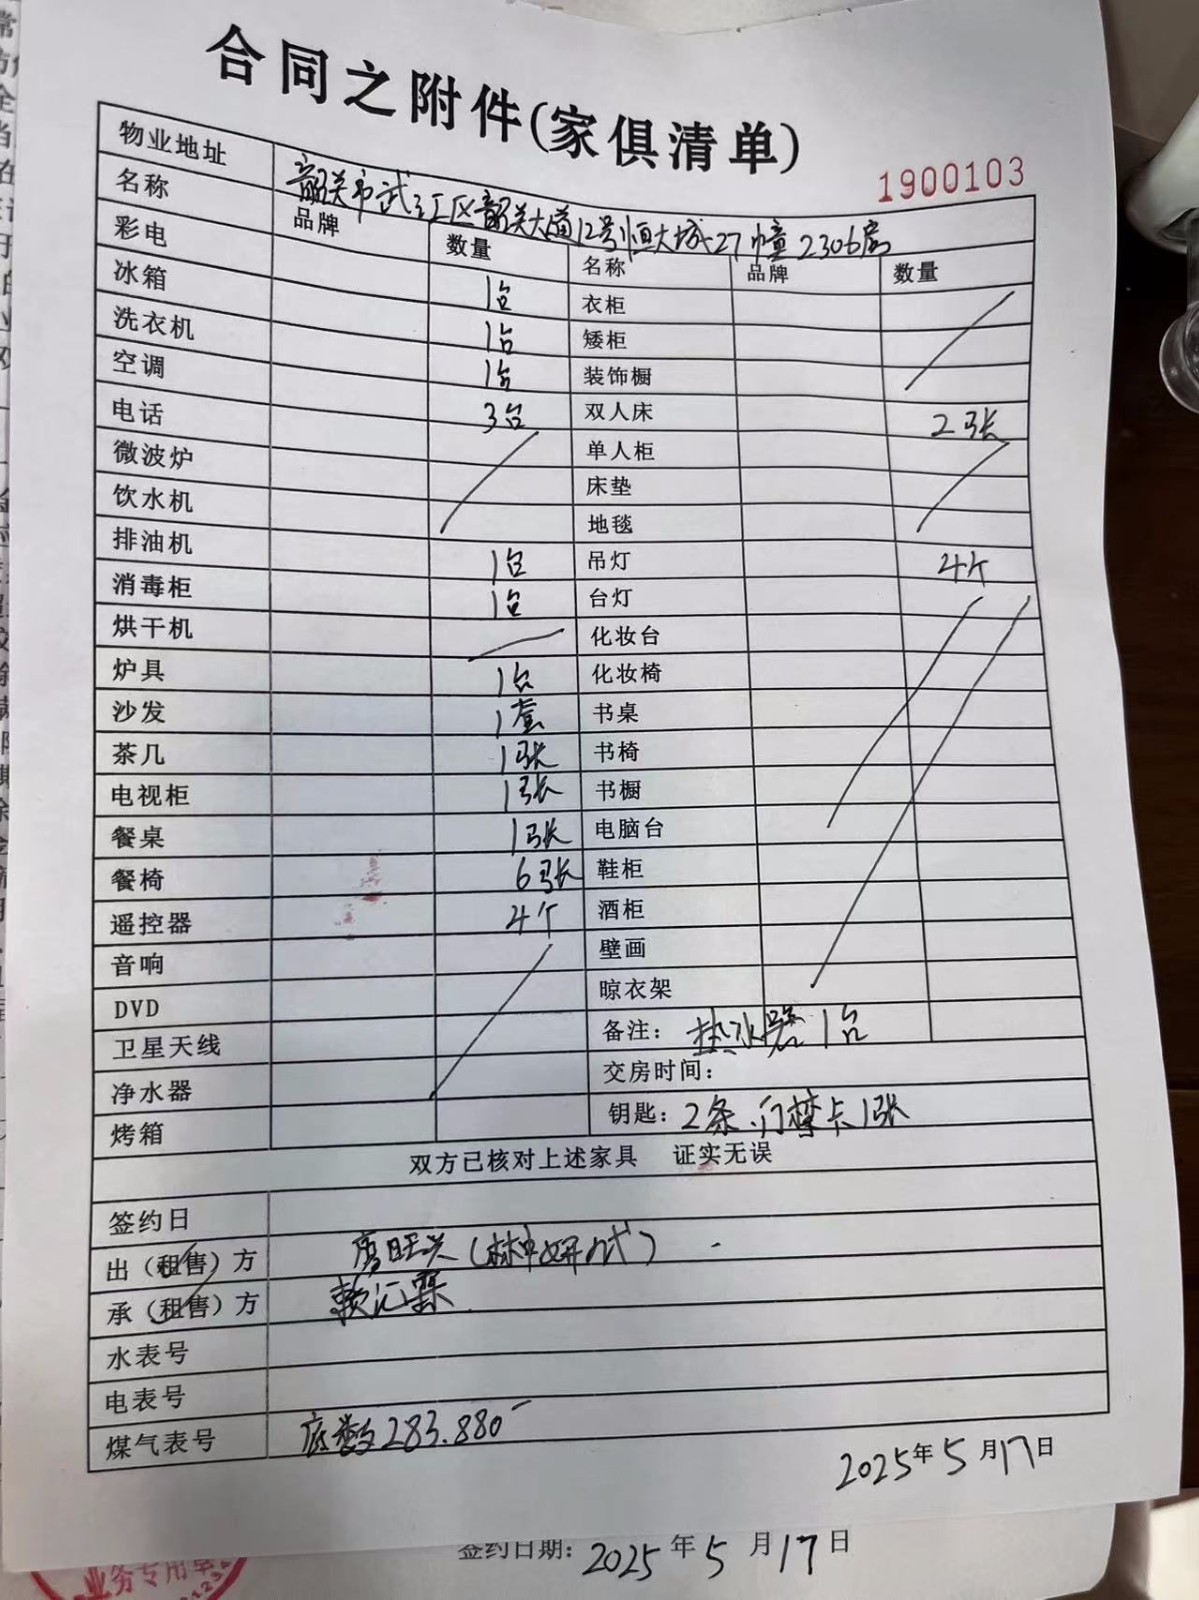 合同之附件(家俱清单)
1900103
物业地址 韶关市武江区韶关大道12号恒大城27幢2306房
名称 品牌 数量 名称 品牌 数量
彩电 1台 衣柜
冰箱 1台 矮柜
洗衣机 1台 装饰橱
空调 3台 双人床 2张
电话 单人柜
微波炉 床垫
饮水机 地毯
排油机 1台 吊灯 4个
消毒柜 1台 台灯
烘干机 化妆台
炉具 1台 化妆椅
沙发 1套 书桌
茶几 1张 书椅
电视柜 1张 书橱
餐桌 1张 电脑台
餐椅 6张 鞋柜
遥控器 4个 酒柜
音响 壁画
DVD 晾衣架
卫星天线 备注: 热水器1台
净水器 交房时间:
烤箱 钥匙: 2条、门禁卡1张
双方已核对上述家具 证实无误
签约日
出(租售)方
承(租售)方
水表号
电表号
煤气表号 底数283.880
2025年5月17日
签约日期: 2025年5月17日
业务专用章